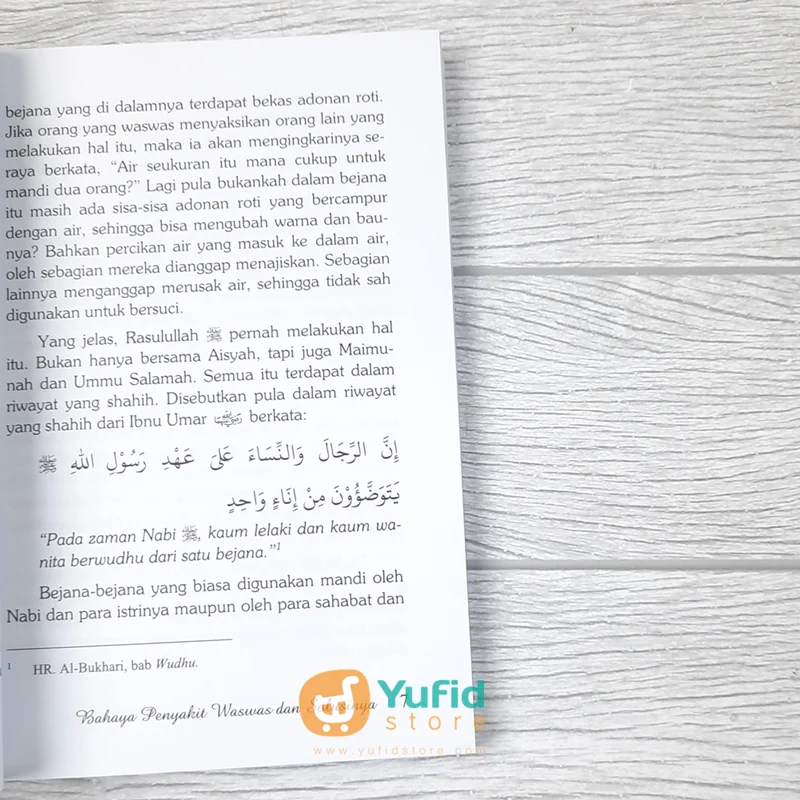 bejana yang di dalamnya terdapat bekas adonan roti.
Jika orang yang waswas menyaksikan orang lain yang
melakukan hal itu, maka ia akan mengingkarinya se-
raya berkata, “Air seukuran itu mana cukup untuk
mandi dua orang?” Lagi pula bukankah dalam bejana
itu masih ada sisa-sisa adonan roti yang bercampur
dengan air, sehingga bisa mengubah warna dan bau-
nya? Bahkan percikan air yang masuk ke dalam air,
oleh sebagian mereka dianggap menajiskan. Sebagian
lainnya menganggap merusak air, sehingga tidak sah
digunakan untuk bersuci.
Yang jelas, Rasulullah ﷺ pernah melakukan hal
itu. Bukan hanya bersama Aisyah, tapi juga Maimu-
nah dan Ummu Salamah. Semua itu terdapat dalam
riwayat yang shahih. Disebutkan pula dalam riwayat
yang shahih dari Ibnu Umar berkata:
إِنَّ الرِّجَالَ وَالنِّسَاءَ عَلَى عَهْدِ رَسُوْلِ اللهِ ﷺ
يَتَوَضَّؤُوْنَ مِنْ إِنَاءٍ وَاحِدٍ
“Pada zaman Nabi ﷺ, kaum lelaki dan kaum wa-
nita berwudhu dari satu bejana.”1
Bejana-bejana yang biasa digunakan mandi oleh
Nabi dan para istrinya maupun oleh para sahabat dan
1 HR. Al-Bukhari, bab Wudhu.
Bahaya Penyakit Waswas dan Solusinya
Yufid
store
www.yufidstore.com